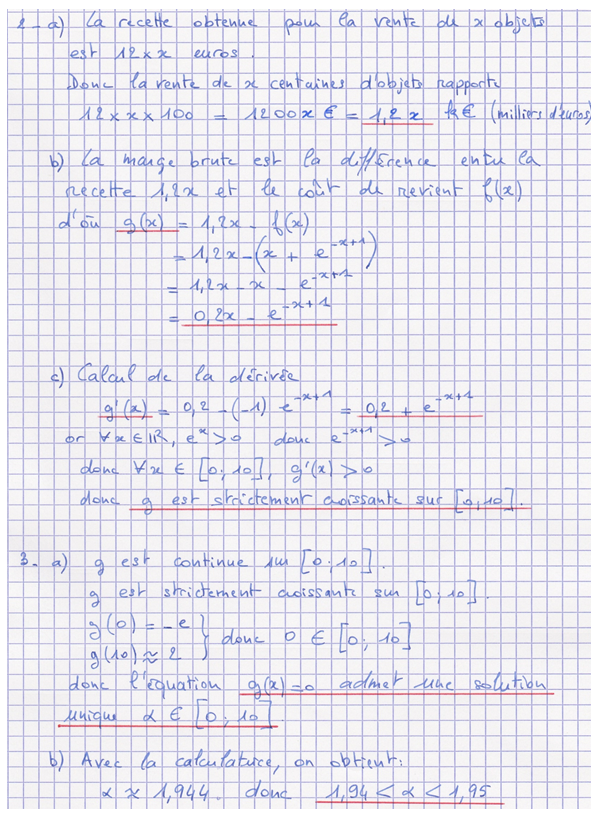 2-a) La recette obtenue pour la vente de x objets
est 12 × x euros.
Donc la vente de x centaines d'objets rapporte
12 × x × 100 = 1200x € = 1,2x k€ (milliers d'euros)
b) La marge brute est la différence entre la
recette 1,2x et le coût de revient f(x)
d'où g(x) = 1,2x - f(x)
= 1,2x - (x + e^{-x+1})
= 1,2x - x - e^{-x+1}
= 0,2x - e^{-x+1}
c) Calcul de la dérivée
g'(x) = 0,2 - (-1) e^{-x+1} = 0,2 + e^{-x+1}
or ∀x ∈ ℝ, e^x > 0 donc e^{-x+1} > 0
donc ∀x ∈ [0; 10], g'(x) > 0
donc g est strictement croissante sur [0; 10].
3- a) g est continue sur [0; 10].
g est strictement croissante sur [0; 10].
g(0) = -e
g(10) ≈ 2 } donc 0 ∈ [0; 10]
donc l'équation g(x)=0 admet une solution
unique α ∈ [0; 10].
b) Avec la calculatrice, on obtient:
α ≈ 1,944. donc 1,94 < α < 1,95